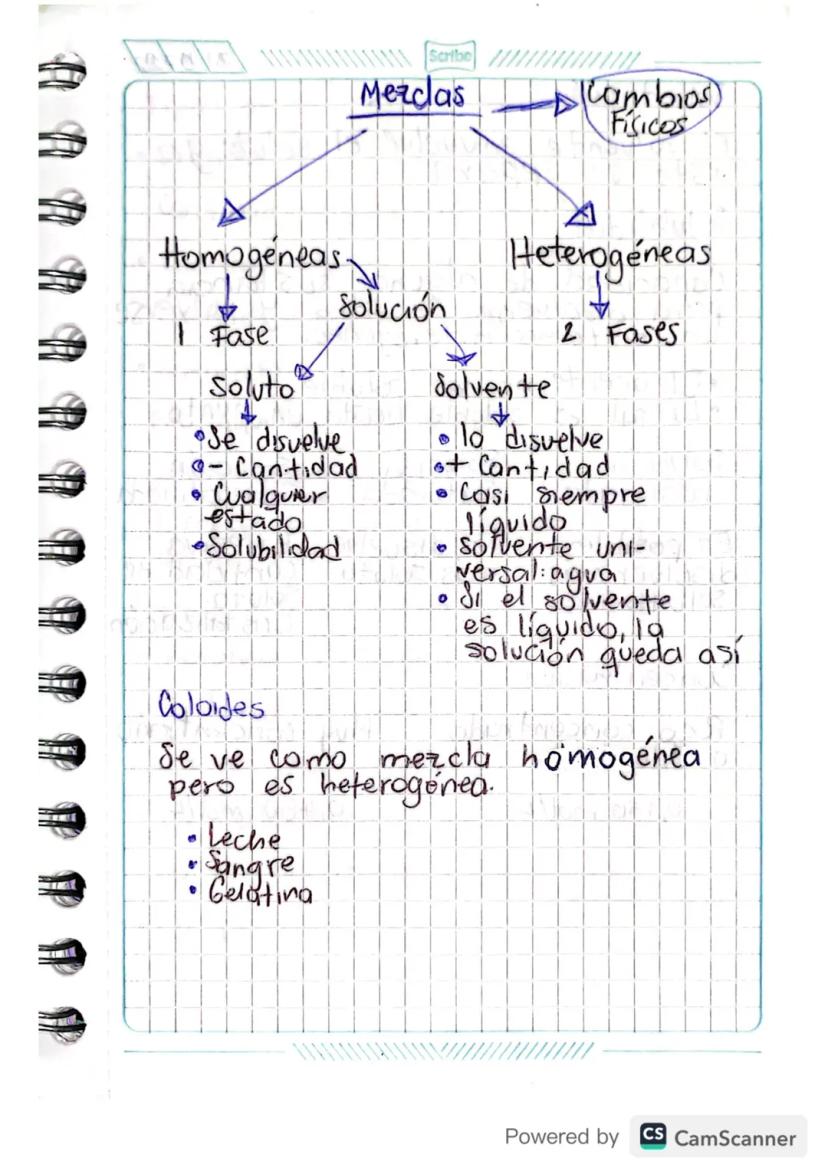 Scribe
Mezclas
Cambios
Físicos
Homogéneas
Heterogéneas
Solución
1 Fase
2 Fases
Soluto
Solvente
• Se disuelve
• - Cantidad
• Cualquier
estado
• Solubilidad
• lo disuelve
• + Cantidad
• Casi siempre
líquido
• solvente uni-
versal: agua
• Si el solvente
es líquido, la
solución queda así
Coloides
Se ve como mezcla homogénea
pero es heterogénea.
• Leche
• Sangre
• Gelatina
Powered by CS CamScanner